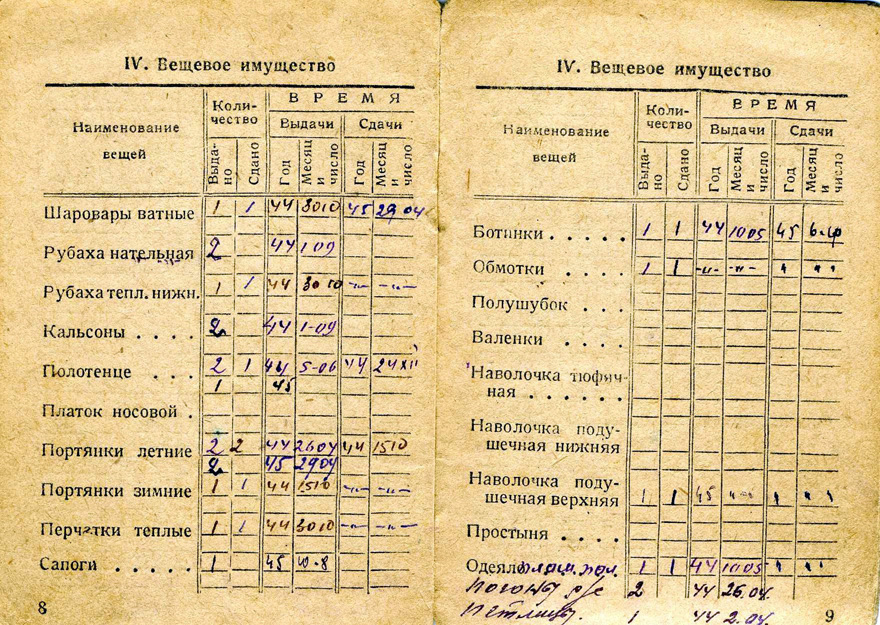 IV. Вещевое имущество
Наименование вещей
Коли-
чество
ВРЕМЯ
Выдачи
Сдачи
Выда-
но
Сдано
Год
Месяц и число
Год
Месяц и число
Шаровары ватные 1 1 44 3010 45 29 04
Рубаха нательная 2 44 1-09
Рубаха тепл. нижн. 1 1 44 3010 -"- -"-
Кальсоны . . . . 2 44 1-09
Полотенце . . . 2 1 44 5-06 44 24 XII
1 45
Платок носовой .
Портянки летние 2 2 44 2604 44 1510
2 45 2904
Портянки зимние 1 1 44 1510 -"- -"-
Перчатки теплые 1 1 44 3010 -"- -"-
Сапоги . . . . . 1 45
8
IV. Вещевое имущество
Наименование
вещей
Коли-
чество
ВРЕМЯ
Выдачи
Сдачи
Выда-
но
Сдано
Год
Месяц и число
Год
Месяц и число
Ботинки . . . . . 1 1 44 1005 45
Обмотки . . . . 1 1 -"- -"- " "
Полушубок . . .
Валенки . . . .
Наволочка тюфяч-
ная . . . . . .
Наволочка поду-
шечная нижняя
Наволочка поду-
шечная верхняя 1 1 45 " " "
Простыня . . . .
Одеяло 1 1 44 1005 " "
Погоны 2 44 26.04.
Петлицы. 1 44 2.04.
9